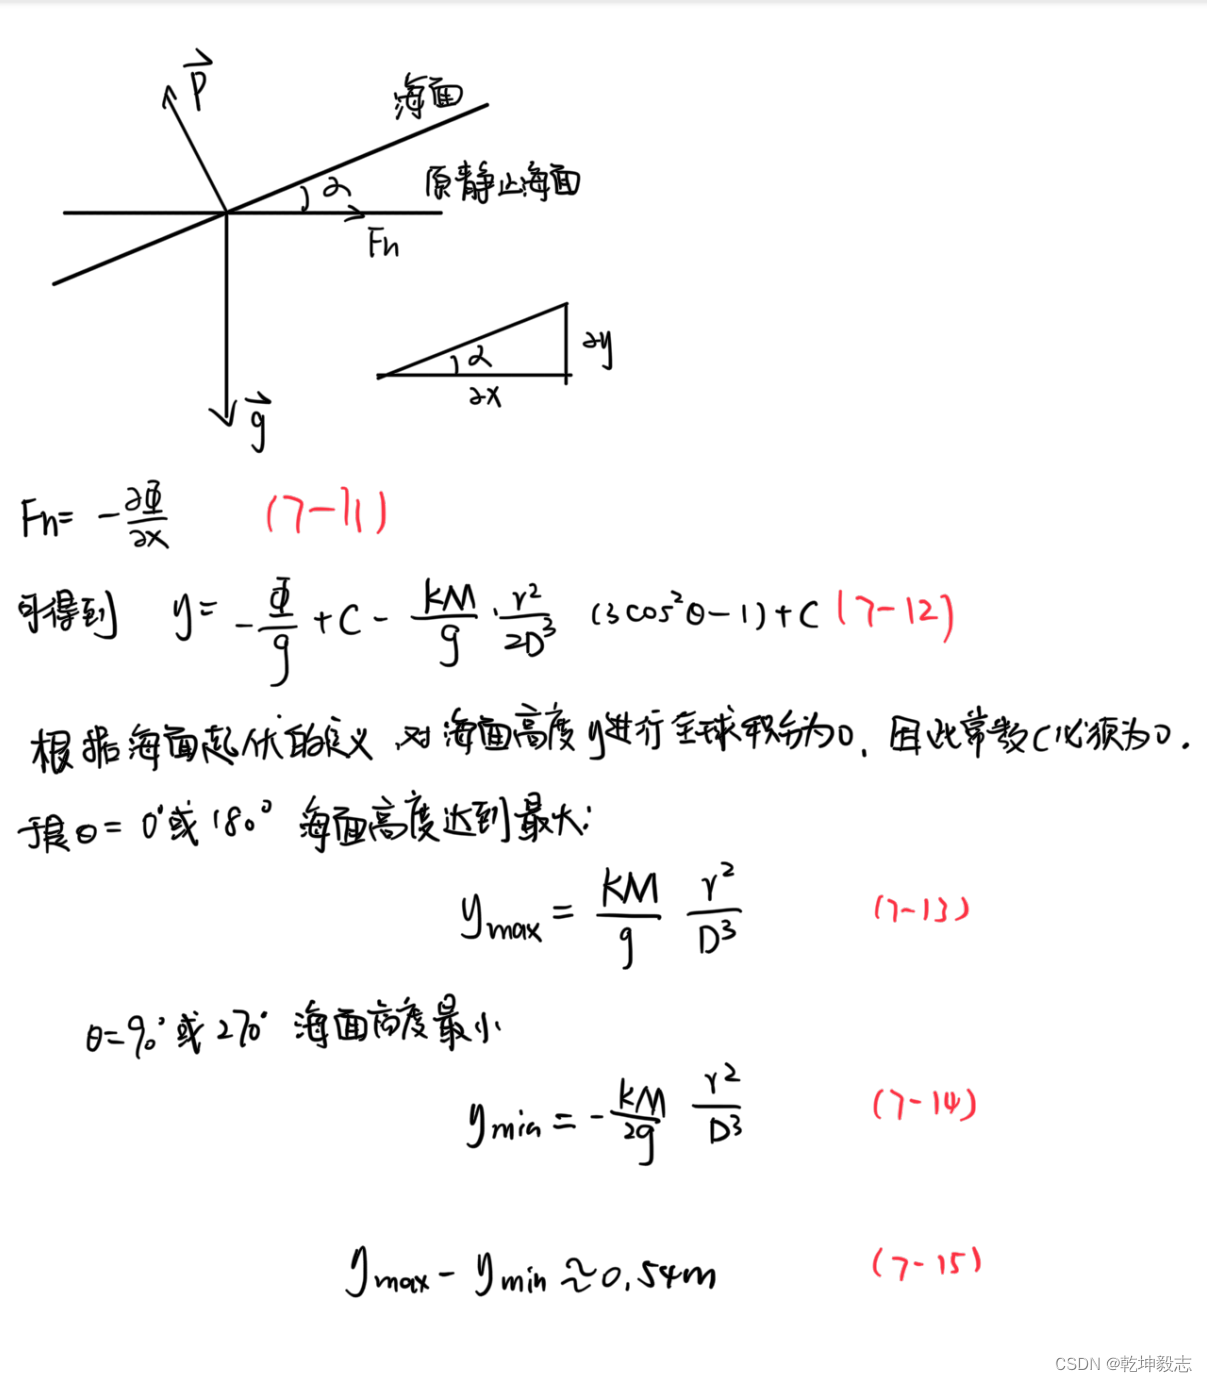 P⃗
海面
α
原静止海面
Fn
α
∂y
∂x
g⃗
Fn= -∂Φ/∂x (7-11)
可得到 y= -Φ/g + C - kM/g · r²/2D³ (3cos²θ-1)+C (7-12)
根据海面起伏的定义,对海面高度y进行全球积分为0,因此常数C必须为0.
于是θ= 0°或180° 海面高度达到最大:
ymax = kM/g r²/D³ (7-13)
θ=90°或270° 海面高度最小
ymin = -kM/2g r²/D³ (7-14)
ymax - ymin ≈0.54m (7-15)
CSDN @乾坤毅志